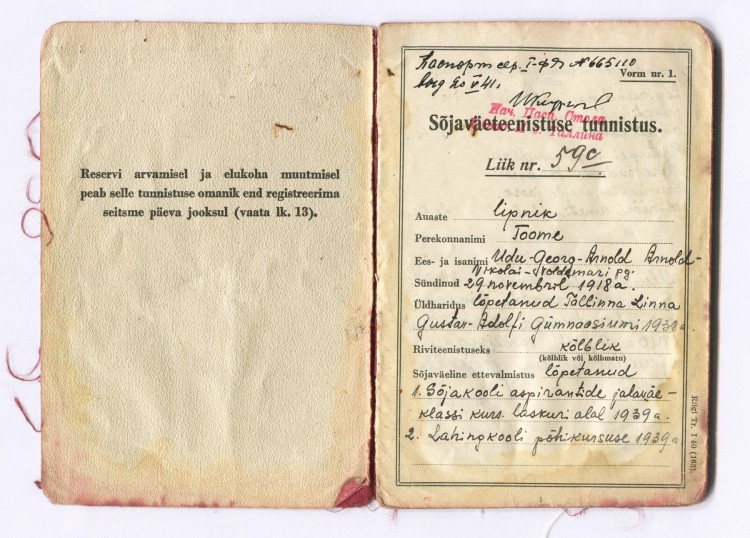 Reservi arvamisel ja elukoha muutmisel
peab selle tunnistuse omanik end registreerima
seitsme päeva jooksul (vaata lk. 13).
Паспорт сер. I-ФЯ № 665110
Vorm nr. 1.
выд 20 V 41.
Нач. Пасп. Стола
Таллина
Sõjaväeteenistuse tunnistus.
Liik nr. 59c
Auaste lipnik
Perekonnanimi Toome
Ees- ja isanimi Udu-Georg-Arnold Arnold-
Nikolai-Voldemari pg.
Sündinud 29 novembril 1918 a.
Üldharidus lõpetanud Tallinna Linna
Gustav-Adolfi Gümnaasiumi 1938 a
Riviteenistuseks kõlblik
(kõlblik või kõlbmatu)
Sõjaväeline ettevalmistus lõpetanud
1. Sõjakooli aspirantide jalaväe-
klassi kurs. laskuri alal 1939 a.
2. Lahingkooli põhikursuse 1939 a
Riigi Tr. T 40 (163).